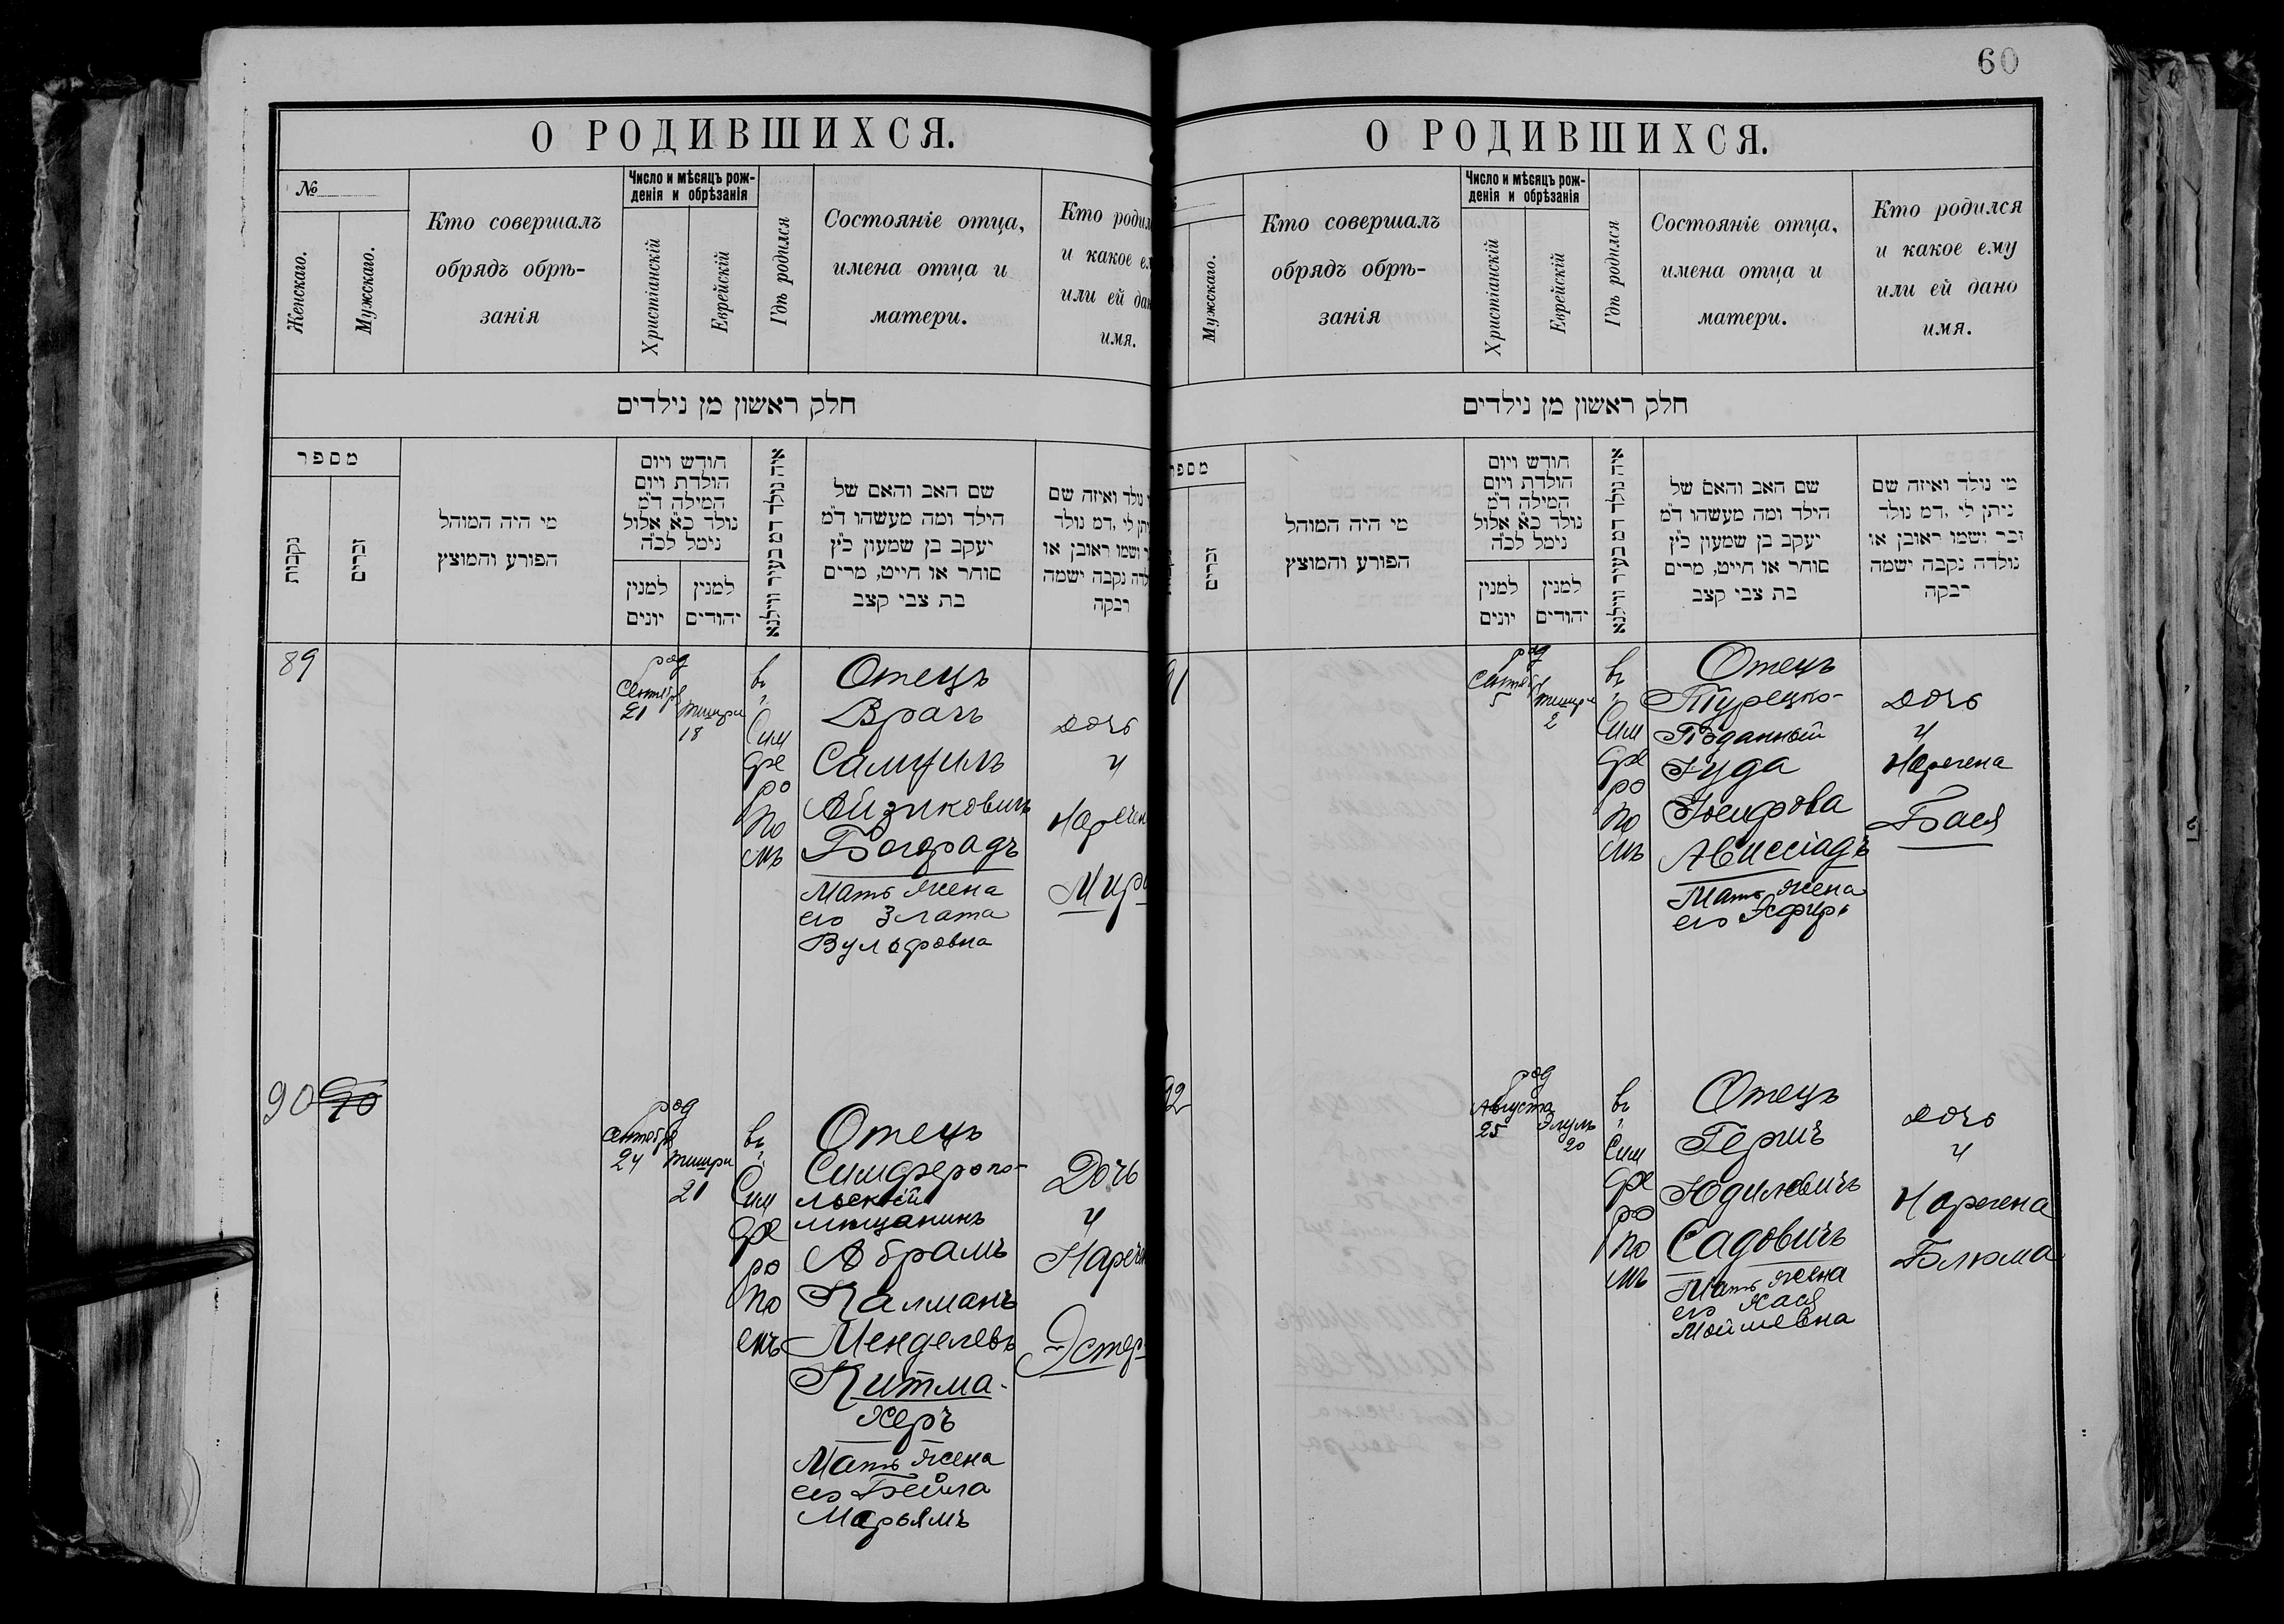 О РОДИВШИХСЯ.
№
Женскаго.
Мужскаго.
Кто совершалъ
обрядъ обрѣ-
занія
Число и мѣсяцъ рож-
денія и обрѣзанія
Христіанскій
Еврейскій
Гдѣ родился
Состояніе отца,
имена отца и
матери.
Кто родил
и какое е
или ей дан
имя.
חלק ראשון מן נילדים
מספר
נקבות
זכרים
מי היה המוהל
הפורע והמוצץ
חודש ויום
הולדת ויום
המילה ד״מ
נולד כ״א אלול
נימל לכ״ה
למנין
יונים
למנין
יהודים
איה נולד דמ בעיר ווילנא
שם האב והאם של
הילד ומה מעשהו ד״מ
יעקב בן שמעון כ״ץ
סוחר או חייט, מרים
בת צבי קצב
נולד ואיזה שם
יתן לי, דמ נולד
ושמו ראובן או
לדה נקבה ישמה
רבקה
89
род
Сентября
21
Тишри
18
въ
г.
Сим
фе
ро
по
лѣ
Отецъ
Врачъ
Самуилъ
Айзиковичъ
Богорадъ
Мать жена
его Злата
Вульфовна
дочь
и
Наречен
Мирь
90
90
род
Сентября
24
Тишри
21
въ
г.
Сим
фе
ро
по
лѣ
Отецъ
Симферопо-
льскій
мѣщанинъ
Абрамъ
Калманъ
Менделевъ
Китма-
херъ
Мать жена
его Бейла
Марьямъ
Дочь
и
Наречен
Эстер
60
О РОДИВШИХСЯ.
Мужскаго.
Кто совершалъ
обрядъ обрѣ-
занія
Число и мѣсяцъ рож-
денія и обрѣзанія
Христіанскій
Еврейскій
Гдѣ родился
Состояніе отца,
имена отца и
матери.
Кто родился
и какое ему
или ей дано
имя.
חלק ראשון מן נילדים
מספ
זכרים
מי היה המוהל
הפורע והמוצץ
חודש ויום
הולדת ויום
המילה ד״מ
נולד כ״א אלול
נימל לכ״ה
למנין
יונים
למנין
יהודים
איה נולד דמ בעיר ווילנא
שם האב והאם של
הילד ומה מעשהו ד״מ
יעקב בן שמעון כ״ץ
סוחר או חייט, מרים
בת צבי קצב
מי נולד ואיזה שם
ניתן לי, דמ נולד
זכר ושמו ראובן או
נולדה נקבה ישמה
רבקה
91
род
Сентября
5
Тишри
2
въ
г.
Сим
фе
ро
по
лѣ
Отецъ
Турецко-
Подданный
Іуда
Юсифова
Ависсіадъ
Мать жена
его Эсфирь
дочь
и
Наречена
Бася
92
род
Августа
25
Элулъ
20
въ
г.
Сим
фе
ро
по
лѣ
Отецъ
Гершъ
Юдилевичъ
Садовичъ
Мать жена
его Хася
Мойшевна
дочь
и
Наречена
Блюма